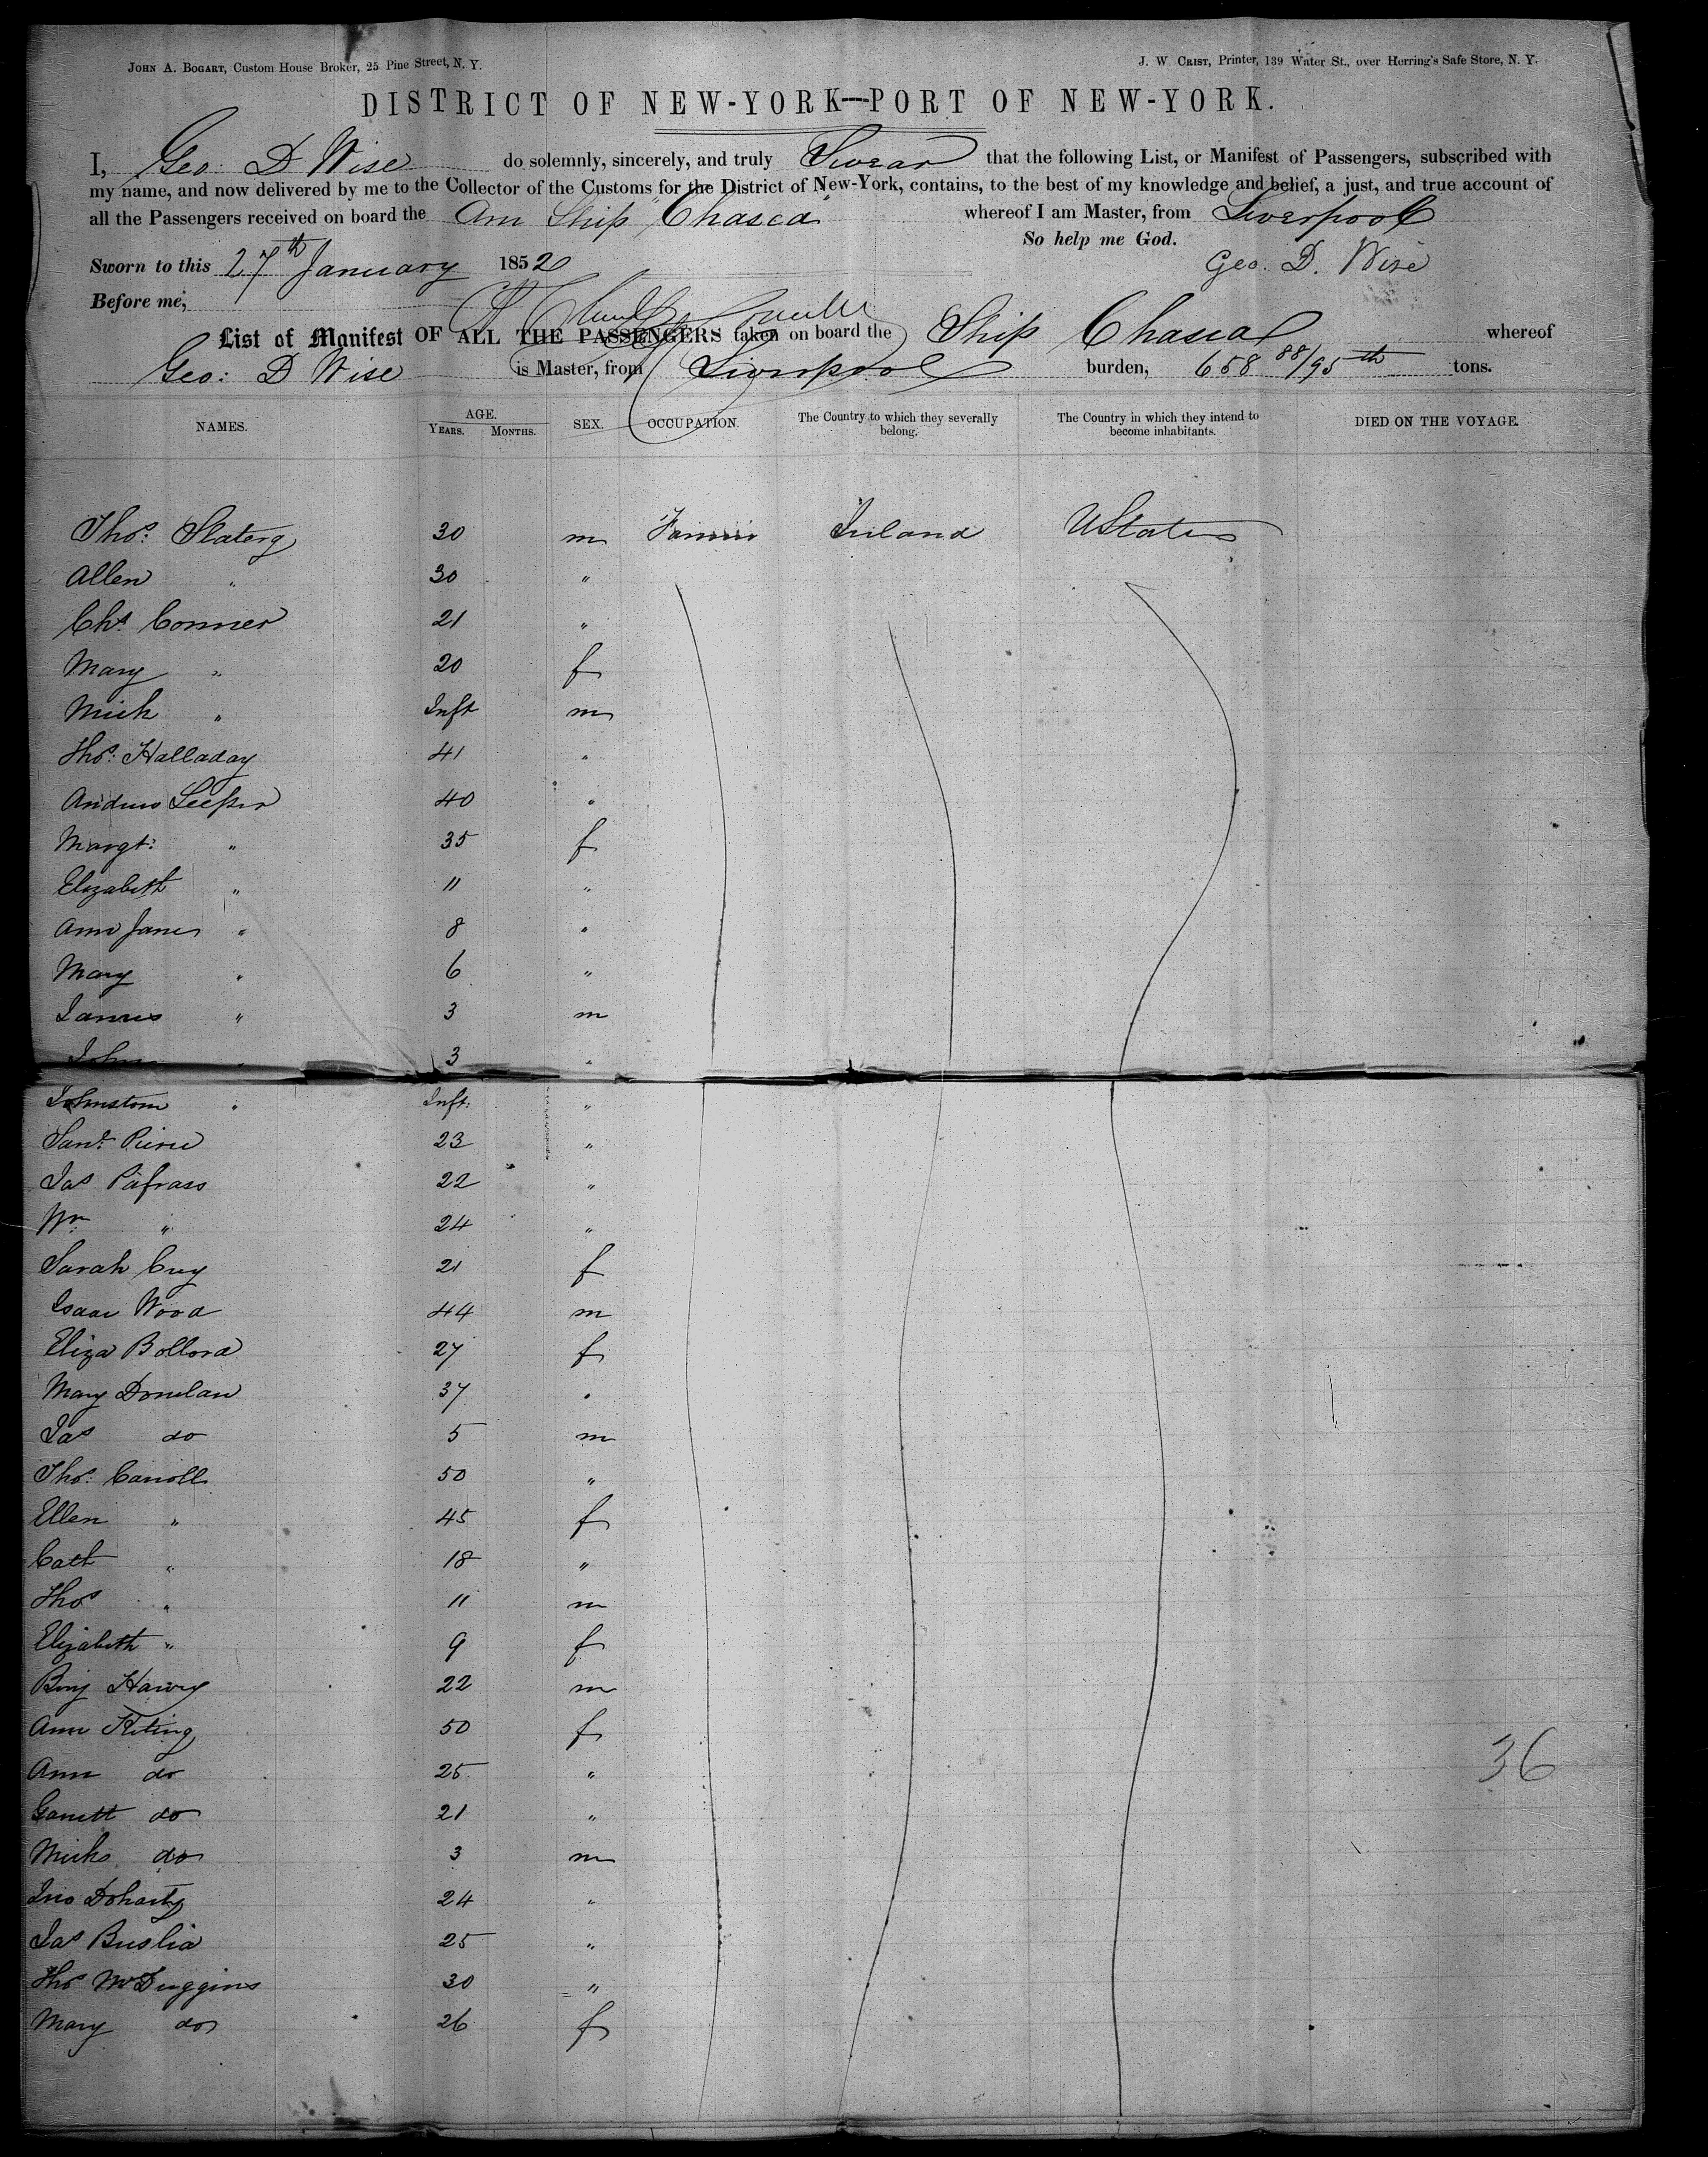 JOHN A. BOGART, Custom House Broker, 25 Pine Street, N. Y.
J. W CRIST, Printer, 139 Water St., over Herring's Safe Store, N. Y.
DISTRICT OF NEW-YORK—PORT OF NEW-YORK.
I, Geo: D Wise do solemnly, sincerely, and truly Swear that the following List, or Manifest of Passengers, subscribed with
my name, and now delivered by me to the Collector of the Customs for the District of New-York, contains, to the best of my knowledge and belief, a just, and true account of
all the Passengers received on board the Am Ship "Chasca" whereof I am Master, from Liverpool
So help me God.
Sworn to this 27th January 1852 Geo. D. Wise
Before me,
List of Manifest OF ALL THE PASSENGERS taken on board the Ship Chasca whereof
Geo: D Wise is Master, from Liverpool burden, 658 88/95th tons.
NAMES. AGE. YEARS. MONTHS. SEX. OCCUPATION. The Country to which they severally belong. The Country in which they intend to become inhabitants. DIED ON THE VOYAGE.
Thos: 30 m Farmer Ireland UStates
Allen " 30 "
Chs. Conner 21 "
Mary " 20 f
Mich " Inft m
Thos: Halladay 41 "
Andrew Leeper 40 "
Margt: " 35 f
Elizabeth " 11 "
Ann Jane " 8 "
Mary " 6 "
James " 3 m
John " 3 "
Johnston " Inft: "
23 "
Jas 22 "
Wm: " 24 "
Sarah 21 f
Isaac Wood 44 m
Eliza Bollord 27 f
Mary Donelan 37 "
Jas do 5 m
Thos: Carroll 50 "
Ellen " 45 f
Cath " 18 "
Thos " 11 m
Elizabeth " 9 f
Benj Harvey 22 m
Ann Kiting 50 f
Ann do 25 "
Garrett do 21 "
Michs do 3 m
Jno Doharty 24 "
Jas 25 "
Thos McDuggins 30 "
Mary do 26 f
36